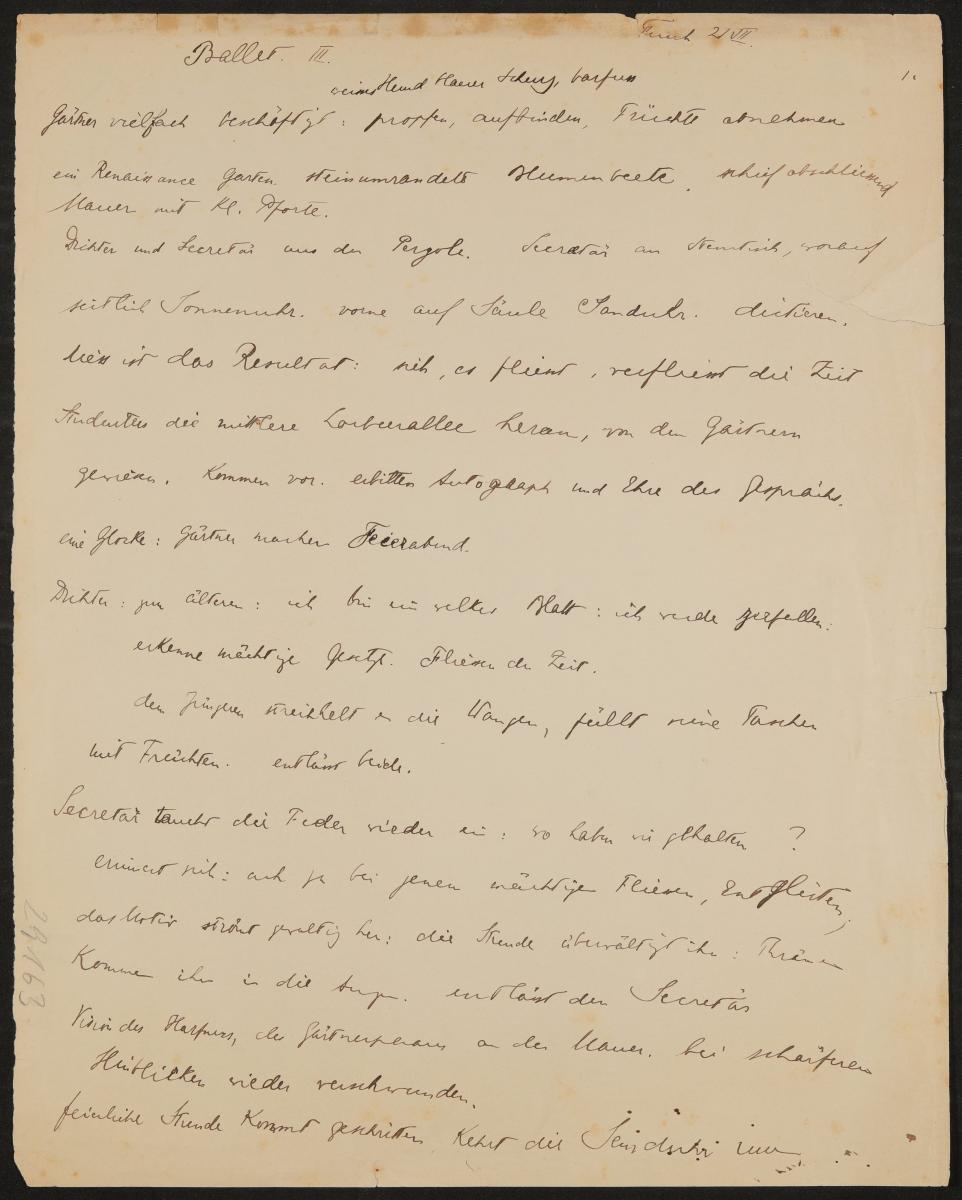 Fusch 2/VII.
Ballet. III.
1.
weiss Hemd blauer Schurz, barfuss
Gärtner vielfach beschäftigt: propfen, aufbinden, Früchte abnehmen
ein Renaissance Garten steinumrandete Blumenbeete. schief abschliessend
Mauer mit kl. Pforte.
Dichter und Secretär aus der Pergola. Secretär an Steintisch, worauf
seitlich Sonnenuhr. vorne auf Säule Sanduhr. dictieren.
dies ist das Resultat: sieh, es fliesst, verfliesst die Zeit
Studenten die mittlere Lorbeerallee heran, von den Gärtnern
gewiesen. Kommen vor. erbitten Autograph und Ehre des Gesprächs.
eine Glocke: Gärtner machen Feierabend.
Dichter: zum älteren: ich bin ein welkes Blatt: ich werde zerfallen:
erkenne mächtige Gesetze. Fliessen der Zeit.
dem Jüngeren streichelt er die Wangen, füllt seine Taschen
mit Früchten. entlässt beide.
Secretär taucht die Feder wieder ein: wo haben wir gehalten?
erinnert sich: ach ja bei jenem mächtigen Fliessen, Entgleiten;
das Motiv strömt gewaltig her: die Stunde überwältigt ihn: Thränen
Kommen ihm in die Augen. entlässt den Secretär
Vision des Harfners, des Gärtnerpaares an der Mauer. bei schärferem
Hinblicken wieder verschwunden.
feierliche Stunde Kommt geschritten Kehrt die Sanduhr um
29163